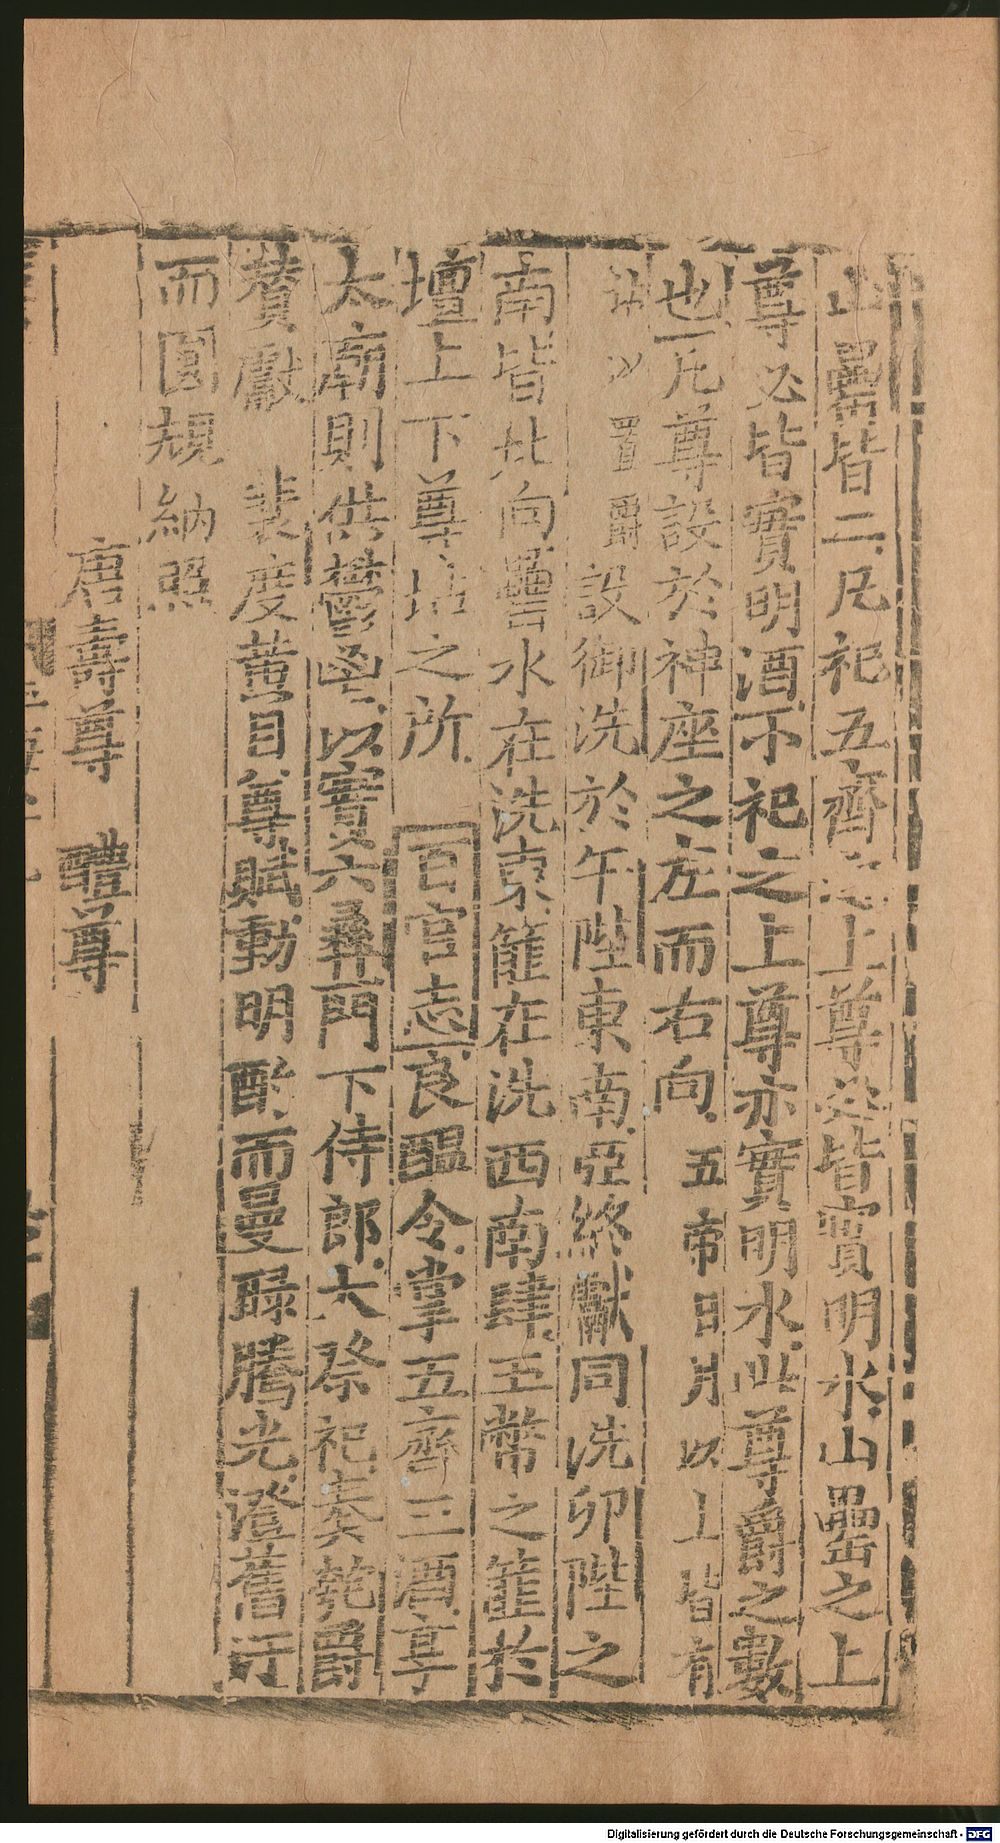 山罍皆二凡祀五齊之上尊必皆實明水山罍之上
尊必皆實明酒小祀之上尊亦實明水此尊爵之數
也凡尊設於神座之左而右向五帝日月以上皆有
坫以置爵設御洗於午陛東南亞終獻同洗卯陛之
南皆北向罍水在洗東篚在洗西南肆玉幣之篚於
壇上下尊坫之所百官志良醞令掌五齊三酒享
太廟則供鬱鬯以實六彝門下侍郎大祭祀奏瓚爵
贊獻裴度黃目尊賦動明酌而曼睩騰光澄舊汙
而圓規納照
唐壽尊 醴尊
Digitalisierung gefördert durch die Deutsche Forschungsgemeinschaft - DFG